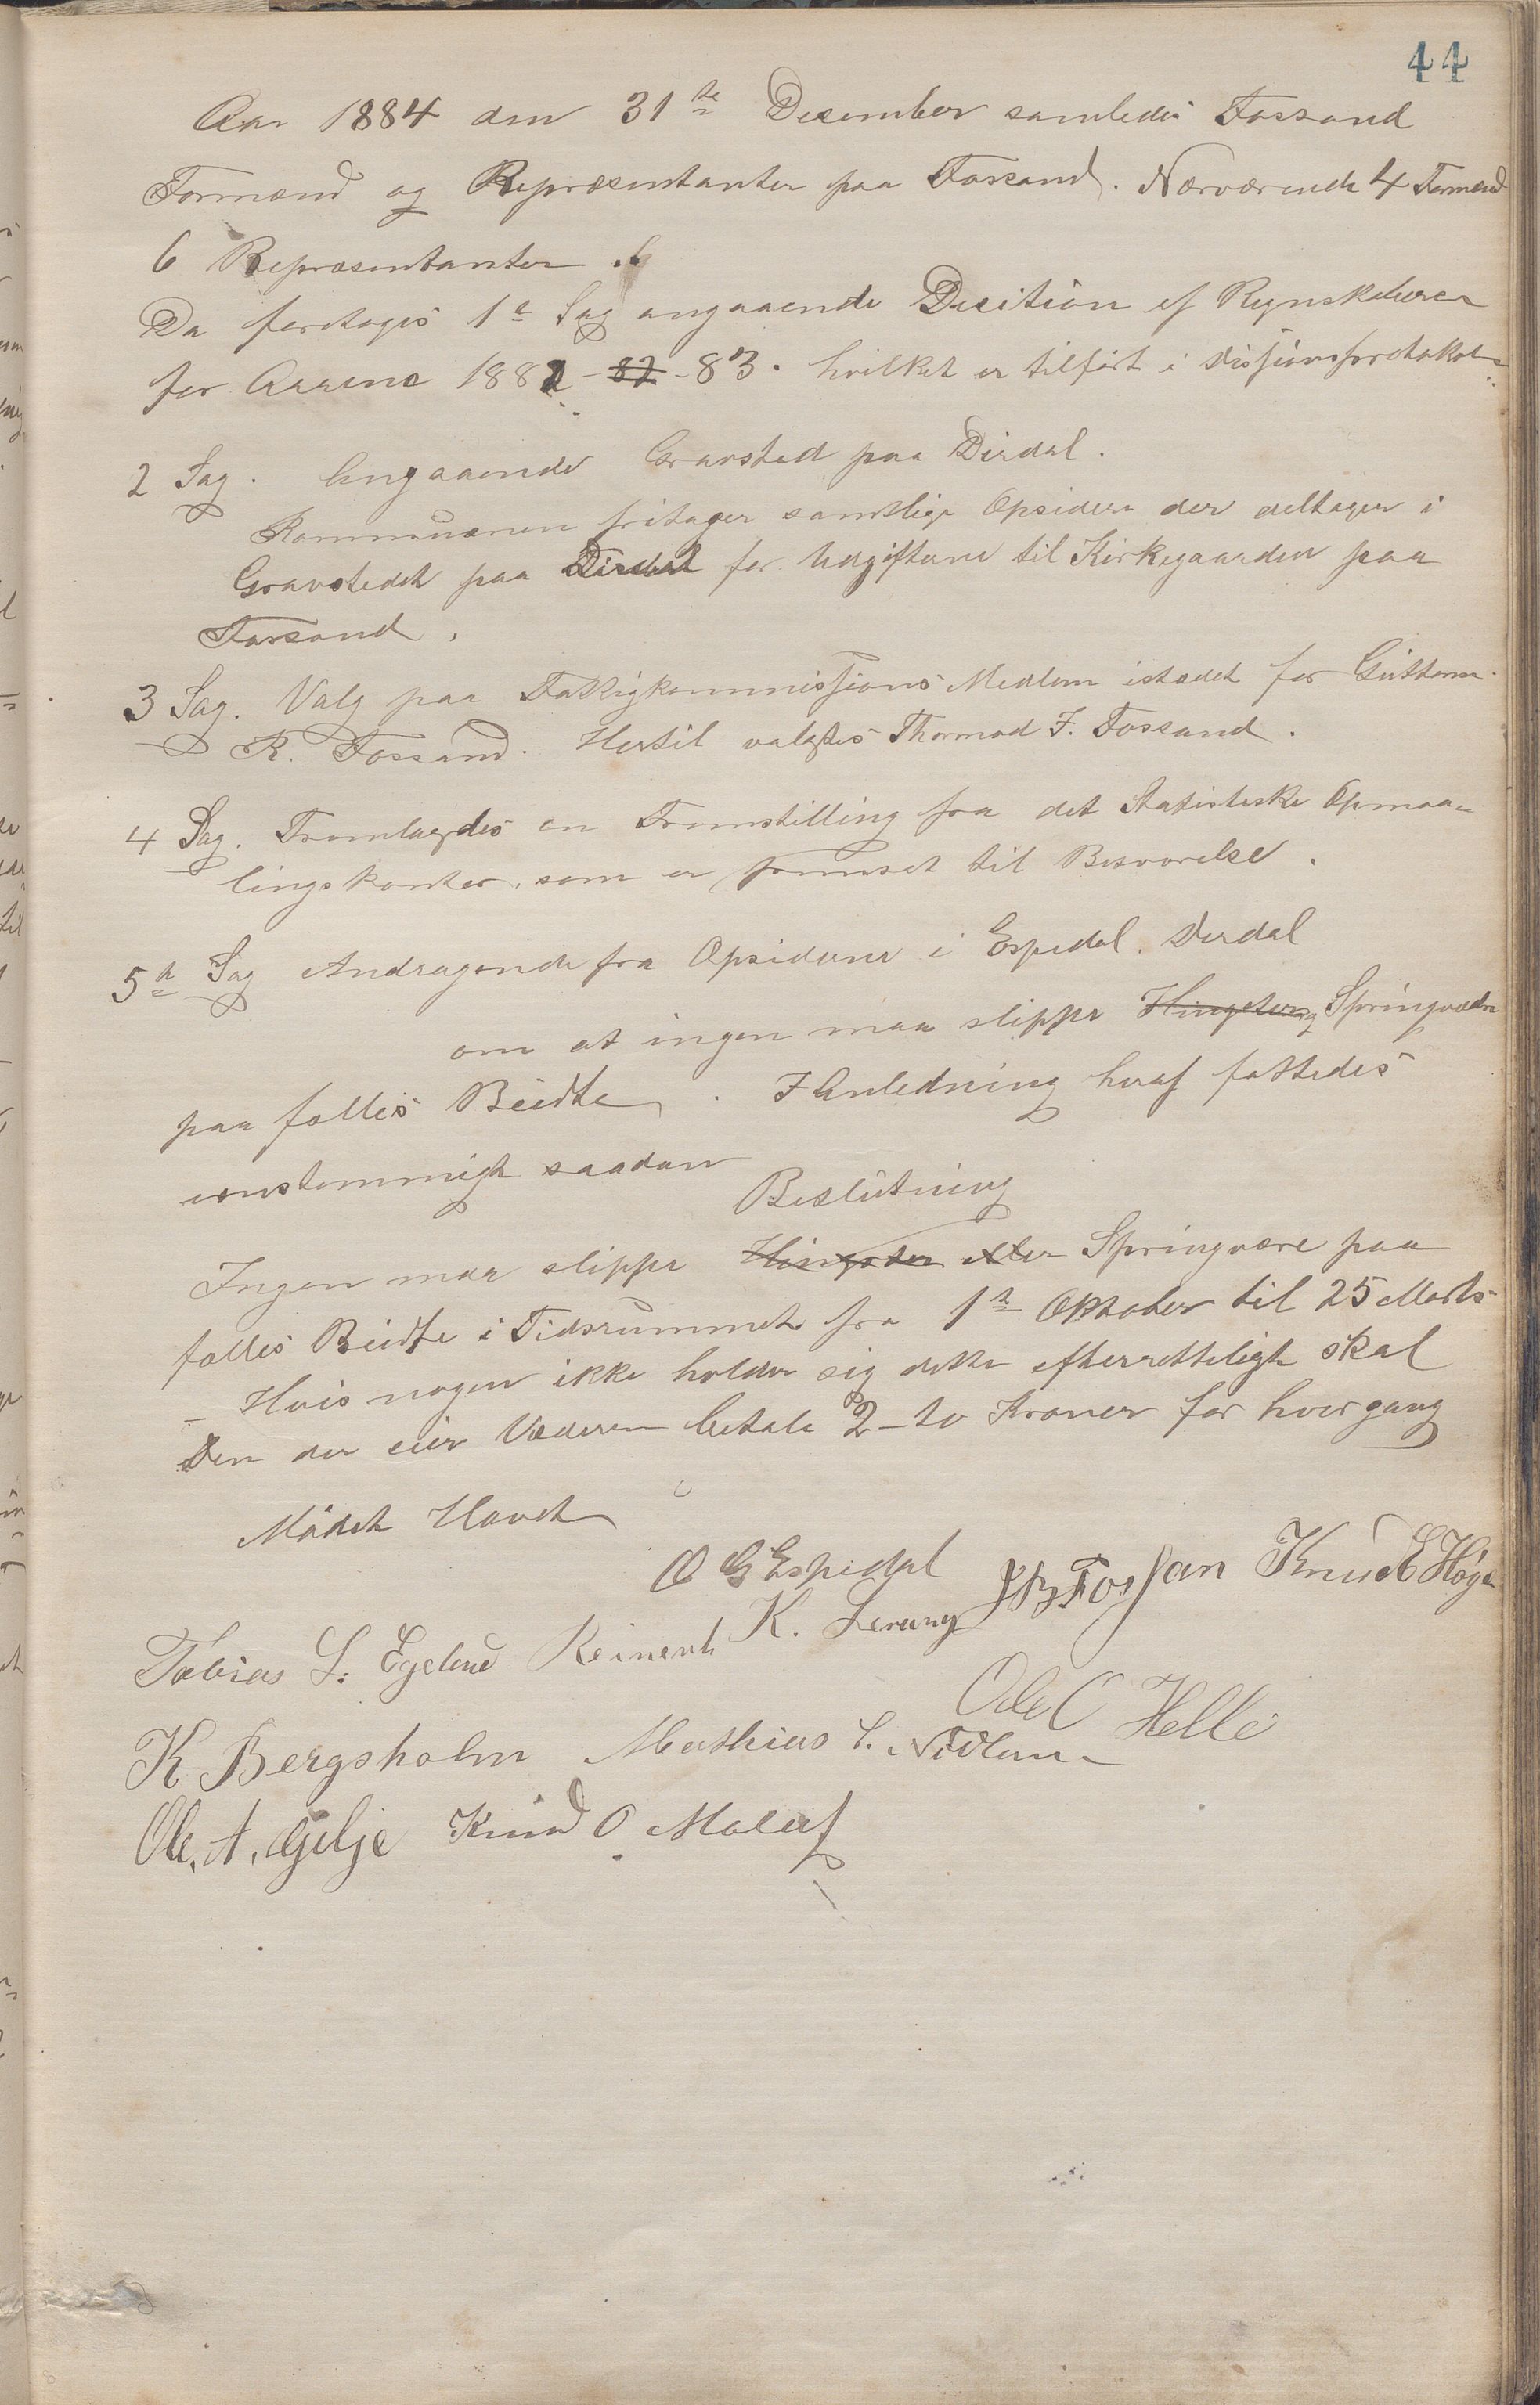 44
Aar 1884 den 31te December samledes Fossand
Formænd og Repræsentanter paa Fossand. Nærværende 4 Formænd
6 Repræsentanter.
Da foretoges 1te Sag angaaende Decition af Regnskaberne
for Aarene 1882 - 82 - 83. hvilket er tilført i Disjionsprotokolen
2 Sag. Angaaende Gravsted paa Dirdal.
Kommunen fritager samtlige Opsidere der deltager i
Gravstedet paa Dirdal for Udgifterne til Kirkegaarden paa
Forsand.
3 Sag. Valg paa Fattigkommissjons Medlem istædet for Guttorm
R. Fossand. Hertil valgtes Thormod J. Fossand.
4 Sag. Fremlagdes en Fremstilling fra det Statisteske Opmaa-
lingskontor, som er sendt til Besvarelse.
5te Sag Andragende fra Opsiderne i Espedal. Dirdal
om at ingen maa slippe Hingster og Springvædre
paa fælles Beidte. I Anledning heraf fattedes
eenstemmigt saadan
Beslutning
Ingen maa slippe Hingster eller Springvære paa
fælles Beidte i Tidsrummet fra 1te Oktober til 25 Marts
- Hvis nogen ikke holder sig dette efterretteligt skal
Den der eier Væderen betale 2 - to Kroner for hvergang
Mødet Hævet
O G Espedal J B Fossan Knud E Høge
Tobias L. Egeland Reinert K. Lerang
K Bergsholm Mathias S. Nidlan Ole C Helle
Ole. A. Gilje Knud O Maleus